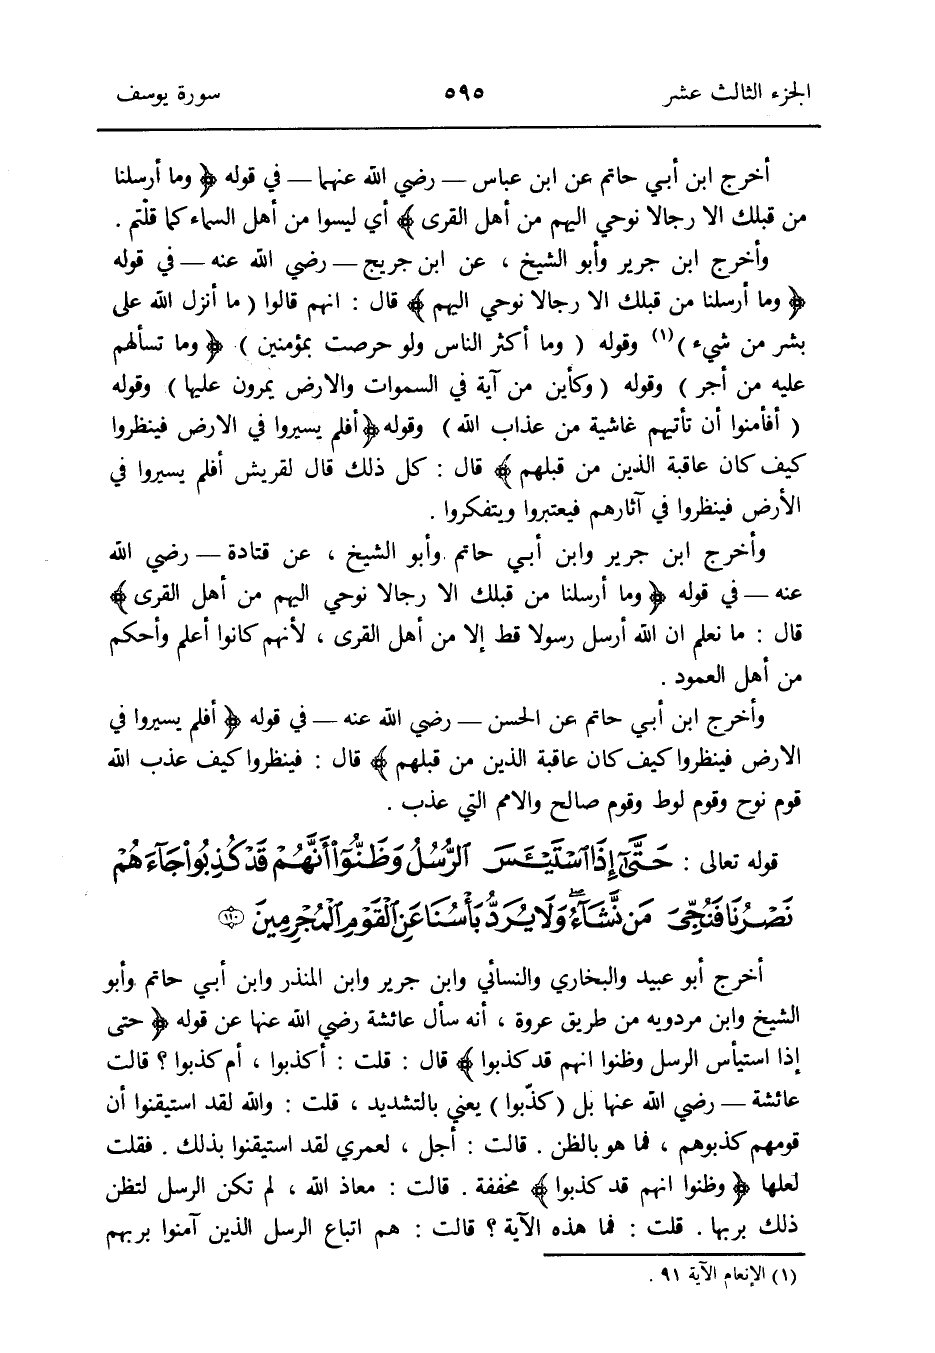 الجزء الثالث عشر ٥٩٥ سورة يوسف
أخرج ابن أبي حاتم عن ابن عباس — رضي الله عنهما — في قوله ﴿ وما أرسلنا
من قبلك الا رجالا نوحي اليهم من أهل القرى ﴾ أي ليسوا من أهل السماء كما قلتم .
وأخرج ابن جرير وأبو الشيخ ، عن ابن جريج — رضي الله عنه — في قوله
﴿ وما أرسلنا من قبلك الا رجالا نوحي اليهم ﴾ قال : انهم قالوا ( ما أنزل الله على
بشر من شيء )(١) وقوله ( وما أكثر الناس ولو حرصت بمؤمنين ) ﴿ وما تسألهم
عليه من أجر ) وقوله ( وكأين من آية في السموات والارض يمرون عليها ) وقوله
( أفأمنوا أن تأتيهم غاشية من عذاب الله ) وقوله ﴿ أفلم يسيروا في الارض فينظروا
كيف كان عاقبة الذين من قبلهم ﴾ قال : كل ذلك قال لقريش أفلم يسيروا في
الأرض فينظروا في آثارهم فيعتبروا ويتفكروا .
وأخرج ابن جرير وابن أبي حاتم وأبو الشيخ ، عن قتادة — رضي الله
عنه — في قوله ﴿ وما أرسلنا من قبلك الا رجالا نوحي اليهم من أهل القرى ﴾
قال : ما نعلم ان الله أرسل رسولا قط إلا من أهل القرى ، لأنهم كانوا أعلم وأحكم
من أهل العمود .
وأخرج ابن أبي حاتم عن الحسن — رضي الله عنه — في قوله ﴿ أفلم يسيروا في
الارض فينظروا كيف كان عاقبة الذين من قبلهم ﴾ قال : فينظروا كيف عذب الله
قوم نوح وقوم لوط وقوم صالح والامم التي عذب .
قوله تعالى : حَتَّىٰٓ إِذَا ٱسْتَيْـَٔسَ ٱلرُّسُلُ وَظَنُّوٓا۟ أَنَّهُمْ قَدْ كُذِبُوا۟ جَآءَهُمْ
نَصْرُنَا فَنُجِّىَ مَن نَّشَآءُ ۖ وَلَا يُرَدُّ بَأْسُنَا عَنِ ٱلْقَوْمِ ٱلْمُجْرِمِينَ ١١٠
أخرج أبو عبيد والبخاري والنسائي وابن جرير وابن المنذر وابن أبي حاتم وأبو
الشيخ وابن مردويه من طريق عروة ، أنه سأل عائشة رضي الله عنها عن قوله ﴿ حتى
إذا استيأس الرسل وظنوا انهم قد كذبوا ﴾ قال : قلت : أكذبوا ، أم كذبوا ؟ قالت
عائشة — رضي الله عنها بل ( كذّبوا ) يعني بالتشديد ، قلت : والله لقد استيقنوا أن
قومهم كذبوهم ، فما هو بالظن . قالت : أجل ، لعمري لقد استيقنوا بذلك . فقلت
لعلها ﴿ وظنوا انهم قد كذبوا ﴾ مخففة . قالت : معاذ الله ، لم تكن الرسل لتظن
ذلك بربها . قلت : فما هذه الآية ؟ قالت : هم اتباع الرسل الذين آمنوا بربهم
(١) الإنعام الآية ٩١ .